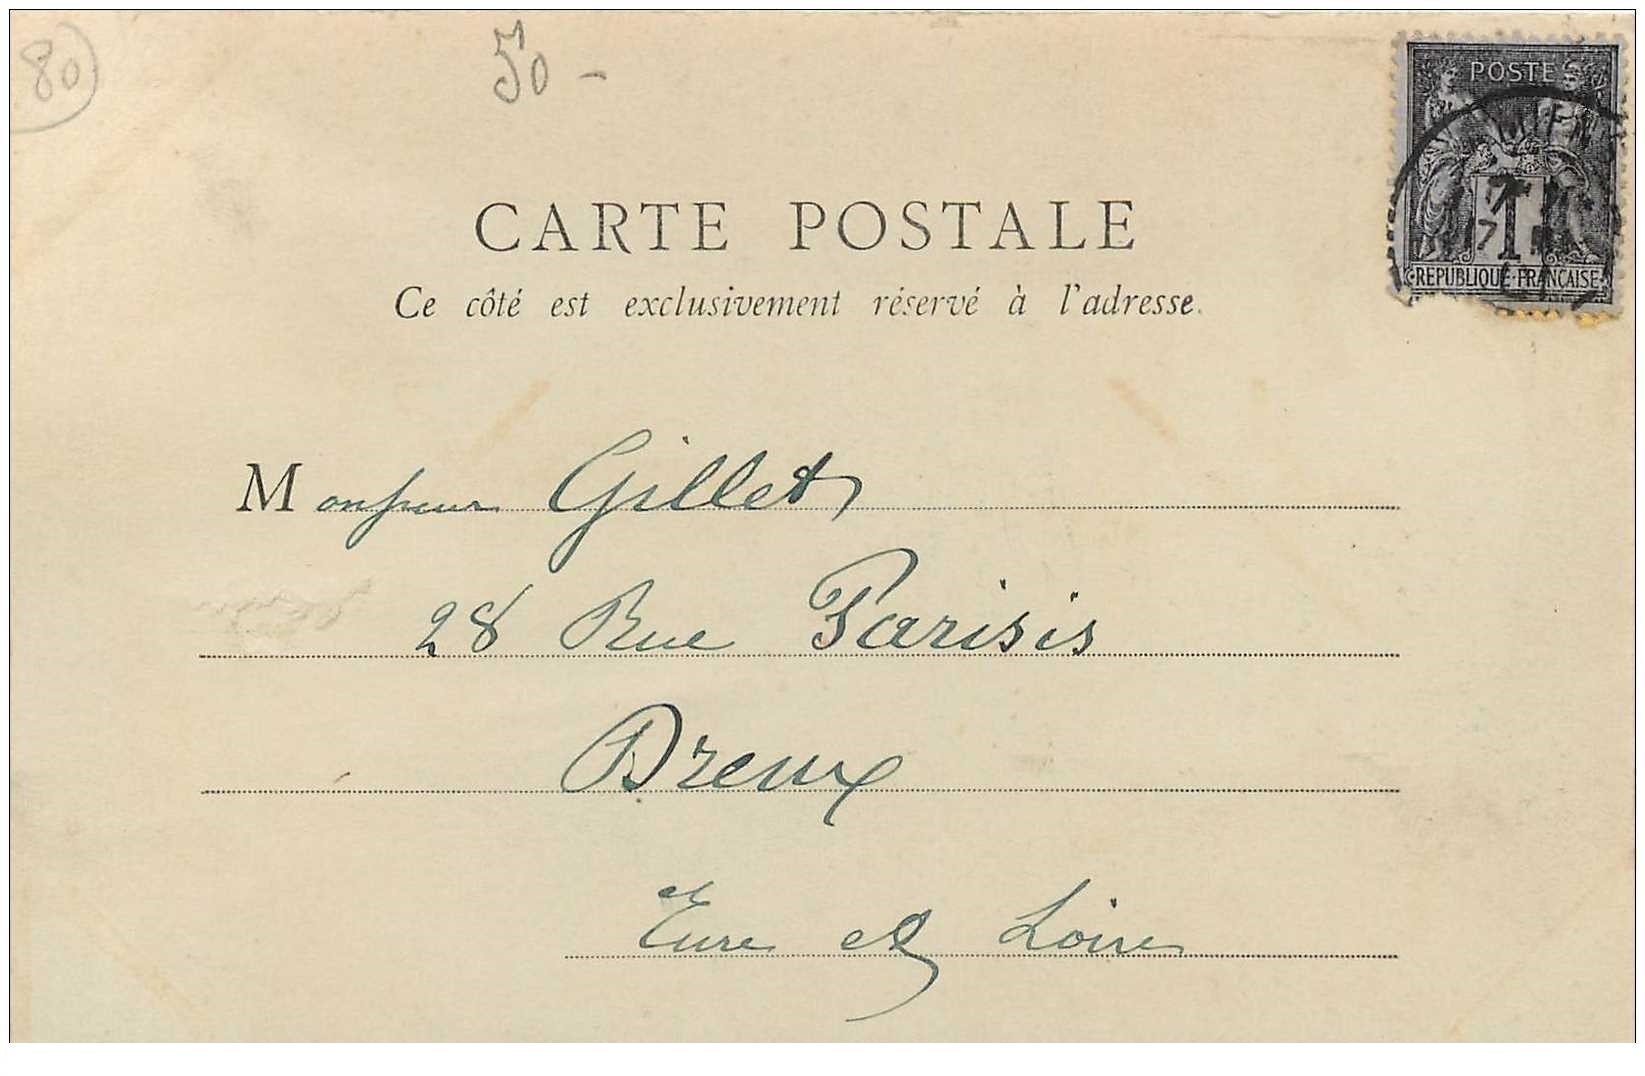 80
50 -
POSTE
1
REPUBLIQUE FRANÇAISE
CARTE POSTALE
Ce côté est exclusivement réservé à l'adresse.
Monsieur Gillet
28 Rue Parisis
Dreux
Eure et Loire